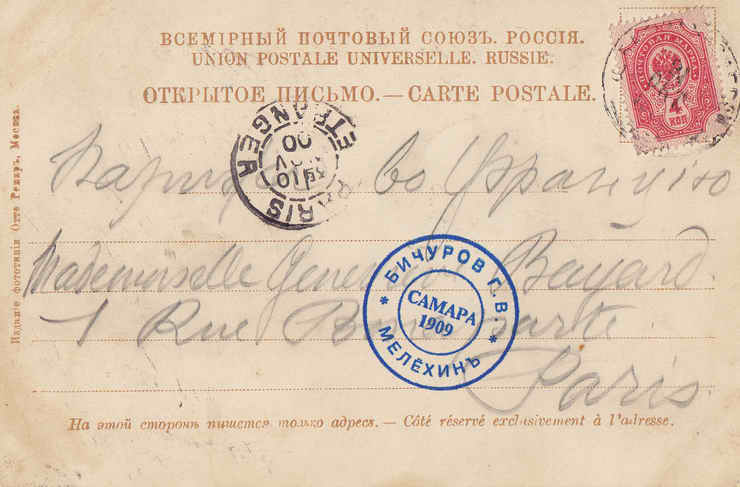 ВСЕМІРНЫЙ ПОЧТОВЫЙ СОЮЗЪ. РОССІЯ.
UNION POSTALE UNIVERSELLE. RUSSIE.
ОТКРЫТОЕ ПИСЬМО. — CARTE POSTALE.
ПОЧТОВАЯ МАРКА
4
КОП
PARIS ETRANGER
10
NOV
00
Парижъ во Францію
Mademoiselle Geneviève Bayard
1 Rue Bonaparte
Paris
БИЧУРОВ Г.В
САМАРА
1909
МЕЛЁХИНЪ
На этой сторонѣ пишется только адресъ. — Côté réservé exclusivement à l'adresse.
Изданіе фототипіи Отто Ренаръ, Москва.